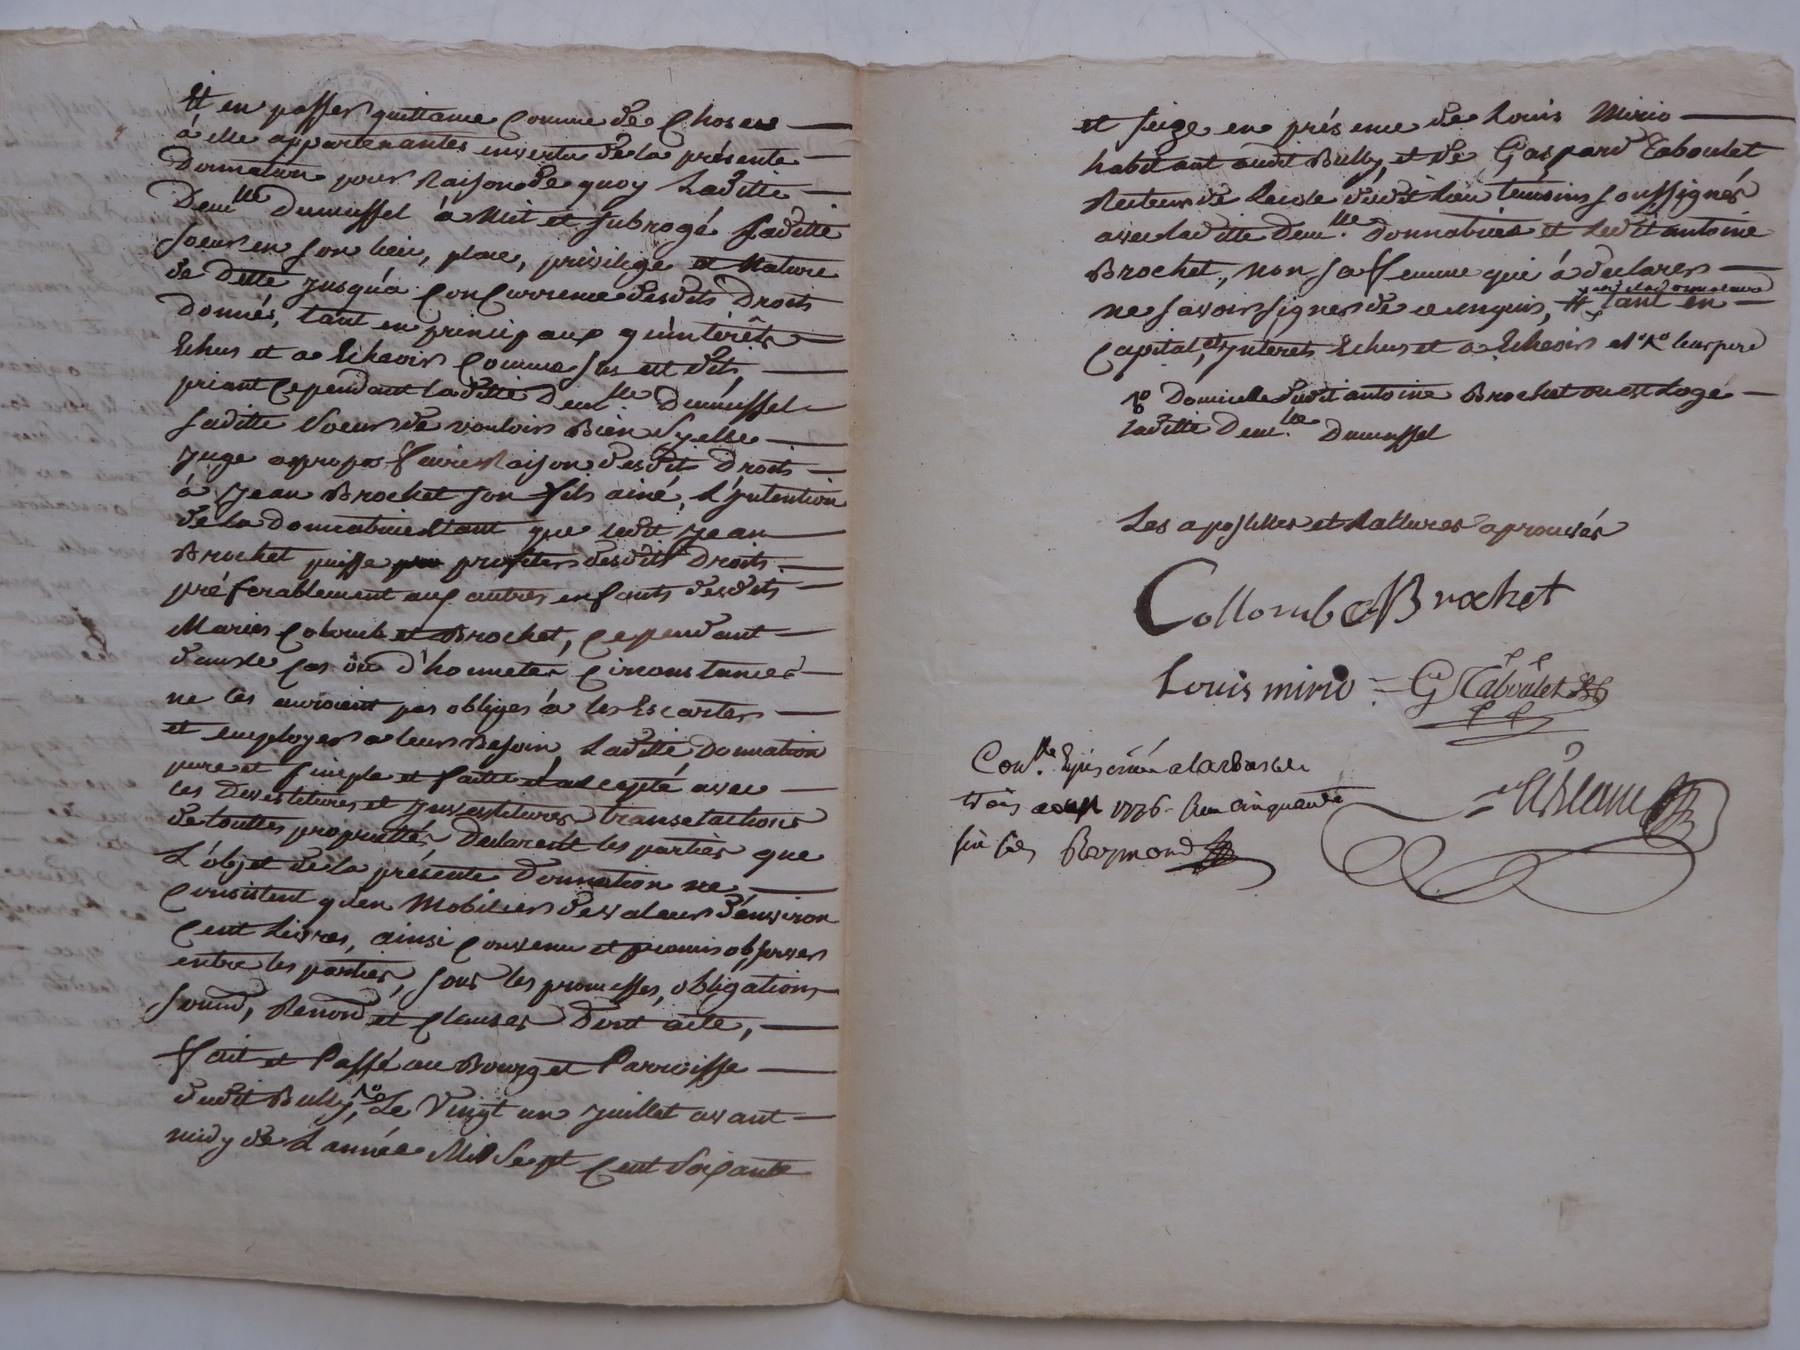 Et en passer quittance comme de choses
à elle appartenantes en vertu de la présente
Donnation pour Raison de quoy Laditte
Demlle Dumussel à Mit et subrogé saditte
soeur en son lieu, place, privilege et Nature
de Dette jusqu'a concurrence desdits Droits
Donnés, tant en principaux qu'intérêts
Echus et a Echeoir comme sus est dit,
priant cependant laditte Demlle Dumussel
saditte soeur de vouloir Bien sy elle
juge apropos faire Raison desdits Droits
à Jean Brochet son fils ainé, L'jntention
de la Donnatrice Etant que ledit jean
Brochet puisse profiter desdits Droits
préferablement aux autres enfants desdits
Mariés Colomb et Brochet, cependant
dans le cas ou d'honnetes circonstances
ne les auroient pas obligés à les Escarter
et employer a leur Besoin Laditte Donnation
pure et simple et faitte et acceptée avec
les Devestitures et jnvestitures translactions
de touttes proprietés Declarent les parties que
L'objet de la présente Donnation ne
Consistent qu'en Mobilier de valeur d'environ
Cent Livres, ainsi convenu et promis observer
entre les parties, sous les promesses, obligations
soumd, Renond et clauses Dont acte,
fait et Passé au Bourg et Parroisse
dudit Bully, Ro Le Vingt un juillet avant
midy de L'année Mil sept cent soixante
et seize en présence de Louis Mirio
habitant audit Bully, et de Gaspard Taboulet
Recteur de Lecole dudit Lieu temoins soussignés
avec laditte Demlle Donnatrice et Ledit antoine
Brochet, non sa femme qui à declarer
ne savoir signer de ce enquis, # tant en
Capital, et jnterets Echus et a Echeoir et Ro leur pere
Ro Domicille dudit antoine Brochet ou est Logé
laditte Demlle Dumussel
Les apostilles et Ratures aprouvés
Collomb Brochet
Louis mirio = G Taboulet
Conlle Ejnsinué a larbresle
trois aout 1776. Reçu cinquante
six sols Raymond